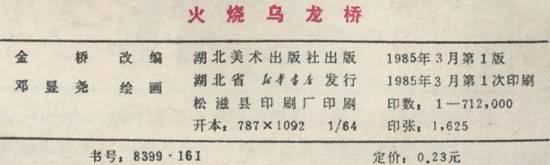 火烧乌龙桥
金桥改编
邓显尧绘画
湖北美术出版社出版
湖北省新华书店发行
松滋县印刷厂印刷
开本：787×1092 1/64
1985年3月第1版
1985年3月第1次印刷
印数：1—712,000
印张：1,625
书号：8399·161
定价：0.23元